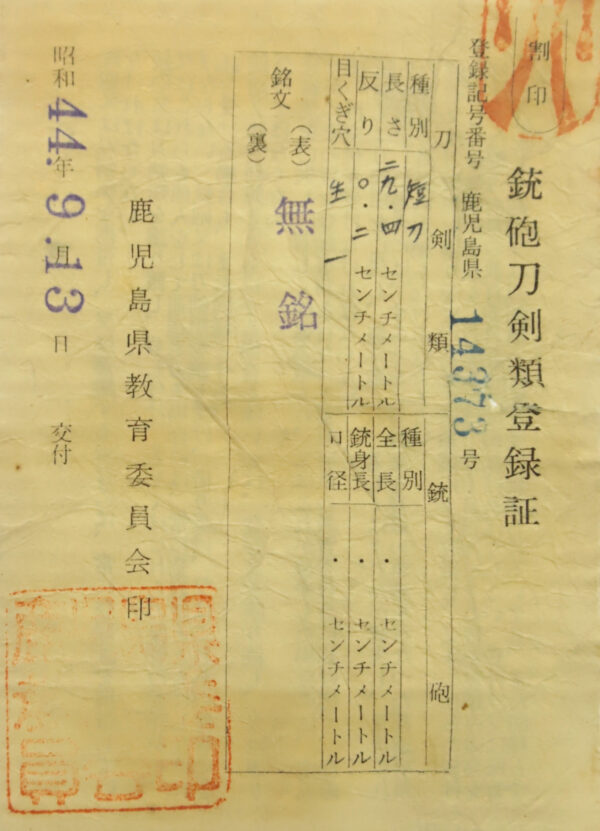 割印
銃砲刀剣類登録証
登録記号番号 鹿児島県 14373 号
刀剣類
種別 短刀
長さ 二九・四 センチメートル
反り 〇・二 センチメートル
目くぎ穴 生 一
銘文 (表) 無銘
(裏)
銃砲
種別
全長 ・ センチメートル
銃身長 ・ センチメートル
口径 ・ センチメートル
鹿児島県教育委員会印
昭和44年9月13日 交付